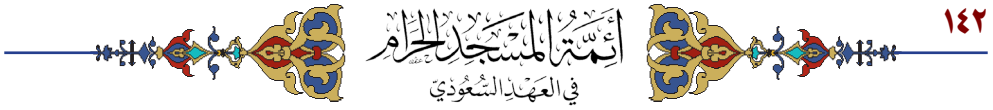 ١٤٢
أَئِمَّةُ المَسْجِدِ الحَرَامِ
فِي العَهْدِ السُّعُودِيِّ